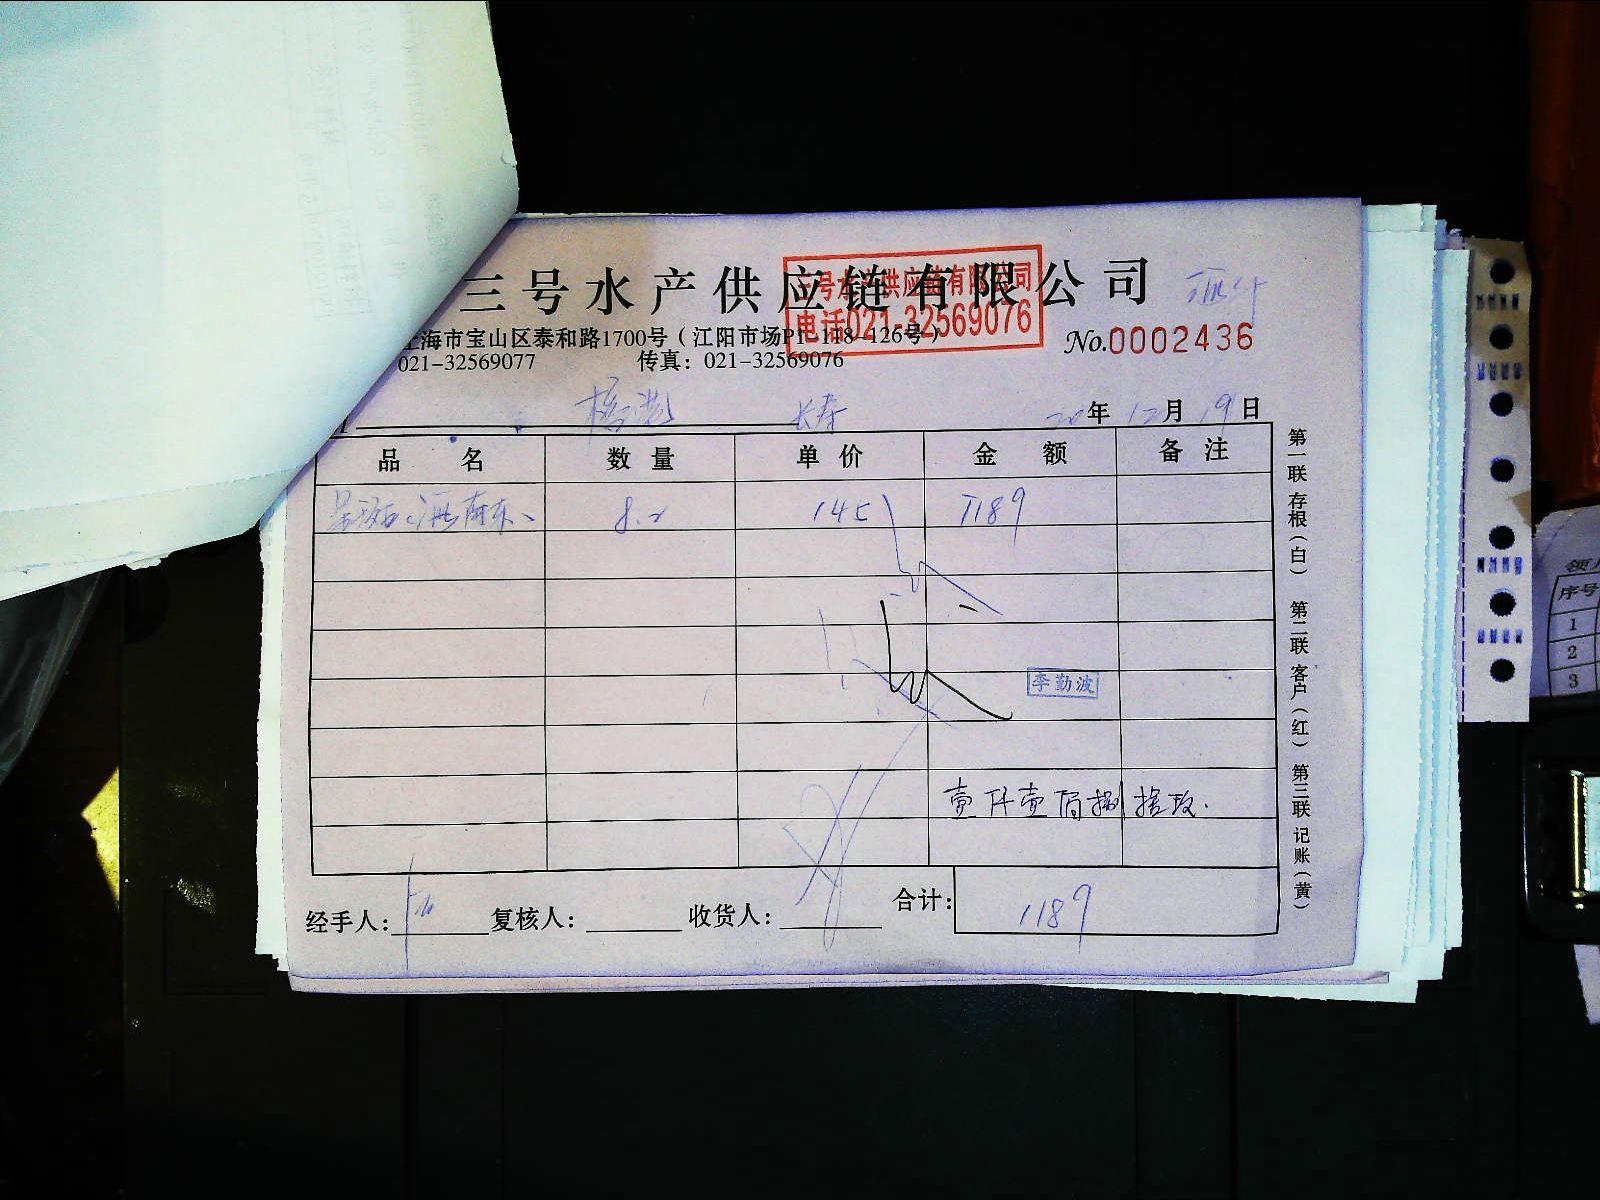 三号水产供应链有限公司
三号水产供应链有限公司
电话021-32569076
上海市宝山区泰和路1700号（江阳市场P1-118-126号）
No.0002436
021-32569077 传真：021-32569076
长寿
20年12月19日
品名 数量 单价 金额 备注
8.2 145 1189
李勤波
壹仟壹佰捌拾玖.
经手人： 复核人： 收货人： 合计： 1189
第一联 存根（白） 第二联 客户（红） 第三联 记账（黄）
序号
1
2
3